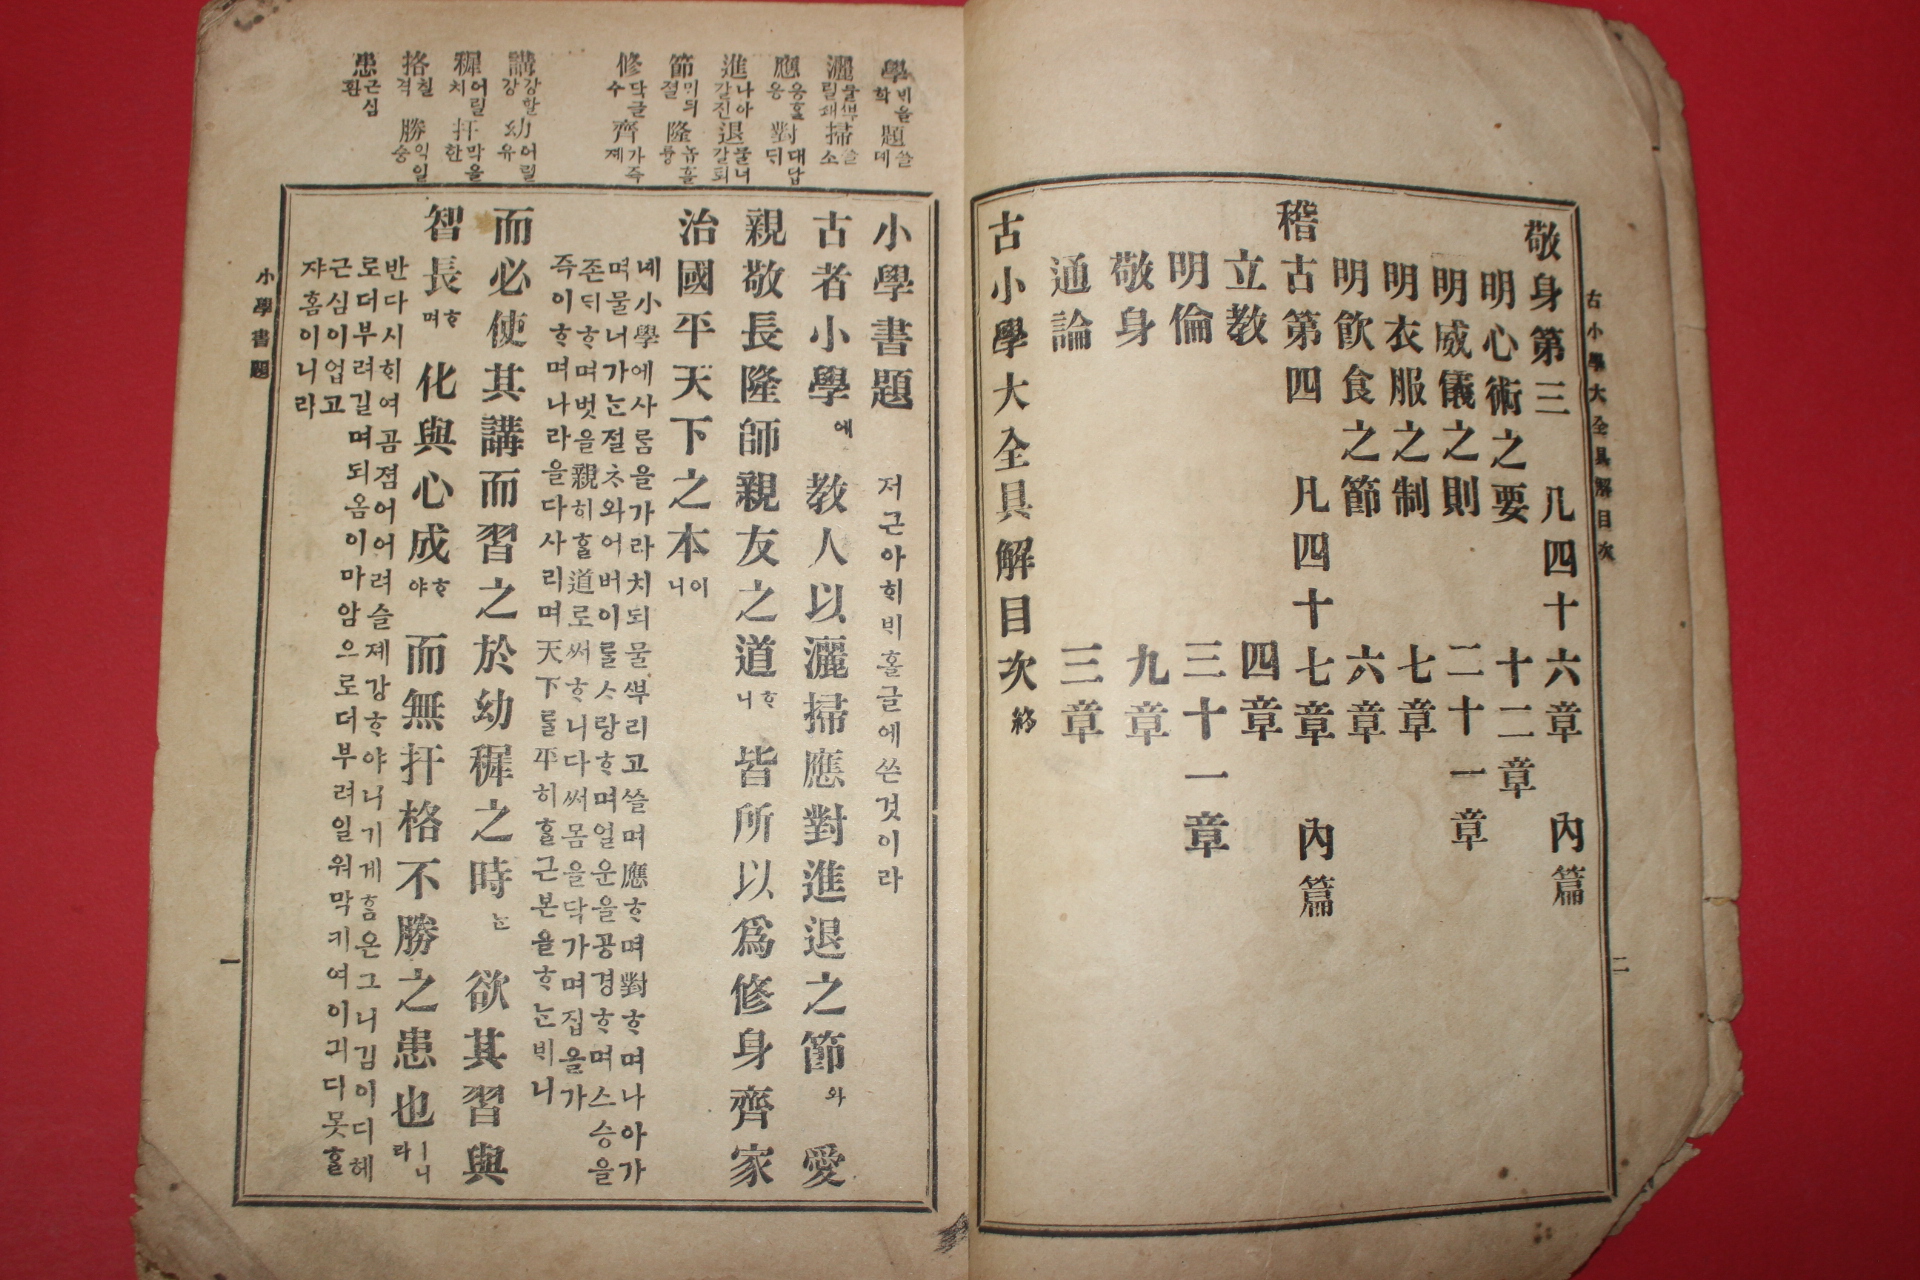 古小學大全具解目次
二
敬身第三 凡四十六章 內篇
明心術之要 十二章
明威儀之則 二十一章
明衣服之制 七章
明飮食之節 六章
稽古第四 凡四十七章 內篇
立敎 四章
明倫 三十一章
敬身 九章
通論 三章
古小學大全具解目次 終
學 ᄇᆡ울 학 題 쓸 뎨
灑 물ᄲᅮ릴 쇄 掃 쓸 소
應 응ᄒᆞᆯ 응 對 대답 ᄃᆡ
進 나아갈 진 退 물너갈 퇴
節 ᄆᆞᄃᆡ 졀 隆 놉흘 륭
修 닥글 수 齊 가즉 졔
講 강할 강 幼 어릴 유
穉 어릴 치 扞 막을 한
挌 칠 격 勝 익일 승
患 근심 환
小學書題 저근아ᄒᆡᄇᆡ홀글에쓴것이라
古者小學에 敎人以灑掃應對進退之節와 愛
親敬長隆師親友之道ᄒᆞ니 皆所以爲修身齊家
治國平天下之本이니
녜小學에사ᄅᆞᆷ을가라치되물ᄲᅮ리고쓸며應ᄒᆞ며對ᄒᆞ며나아가
며물너가ᄂᆞᆫ졀ᄎᆞ와어버이ᄅᆞᆯᄉᆞ랑ᄒᆞ며얼운을공경ᄒᆞ며스승을
존ᄃᆡᄒᆞ며벗을親히ᄒᆞᆯ道로써ᄒᆞ니다써몸을닥가며집을가
즉이ᄒᆞ며나라을다사리며天下ᄅᆞᆯ平히ᄒᆞᆯ근본을ᄒᆞᄂᆞᆫᄇᆡ니
而必使其講而習之於幼穉之時ᄂᆞᆫ 欲其習與
智長ᄒᆞ며 化與心成ᄒᆞ야 而無扞格不勝之患也ㅣ니라
반다시ᄒᆡ여곰졈어어려슬졔강ᄒᆞ야니기게ᄒᆞᆷ은그니김이디혜
로더부려길며되옴이마암으로더부려일워막키여이긔다못ᄒᆞᆯ
근심이업고
쟈홈이니라
小學書題
一